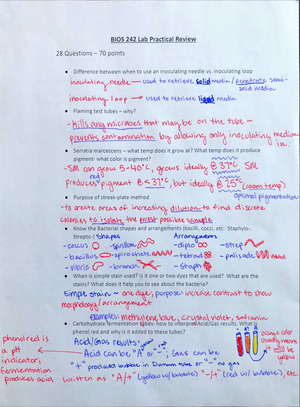 BIOS 242 Lab Practical Review
28 Questions – 70 points
Difference between when to use an inoculating needle vs. inoculating loop
inoculating needle – used to retrieve solid media / penetrate semi-
solid media
inoculating loop – used to retrieve liquid media
Flaming test tubes – why?
- Kills any microbes that may be on the tube –
prevents contamination by allowing only inoculating medium
in.
Serratia marcescens – what temp does it grow at? What temp does it produce
pigment- what color is pigment?
- SM can grow 5-40°C, grows ideally @ 37°C SM
produces red pigment @ <37°C, but ideally @ 25°C (room temp)
optimal pigmentation
Purpose of streak-plate method
- to create areas of increasing dilution to find discrete
colonies to isolate the purest possible sample
Know the Bacterial shapes and arrangements (bacilli, cocci, etc. Staphylo-,
Strepto-) Shapes Arrangements
- coccus - spirillum - diplo - strep
- bacillus - spirochetes - tetrad - palisade
- vibrio - branch - staph
When is simple stain used? Is it one or more dyes that are used? What are the
stains? What does it help you to see about the bacteria?
Simple stain – one dye, purpose: increase contrast to show
morphology/arrangement
examples: methylene blue, crystal violet, safranin
Carbohydrate fermentation tubes- how to interpret Acid/Gas results. What is
phenol red and why is it added to these tubes?
phenol red is
a pH
indicator,
fermentation
produces acid
Acid/Gas results:
Acid can be "A" or "-"; Gas can be
"+" produces bubble in Durham tube or "-" no gas
written as "A/+" (yellow w/ bubble) "-/+" (red w/ bubble), etc.
orange color
usually means
it will be
yellow